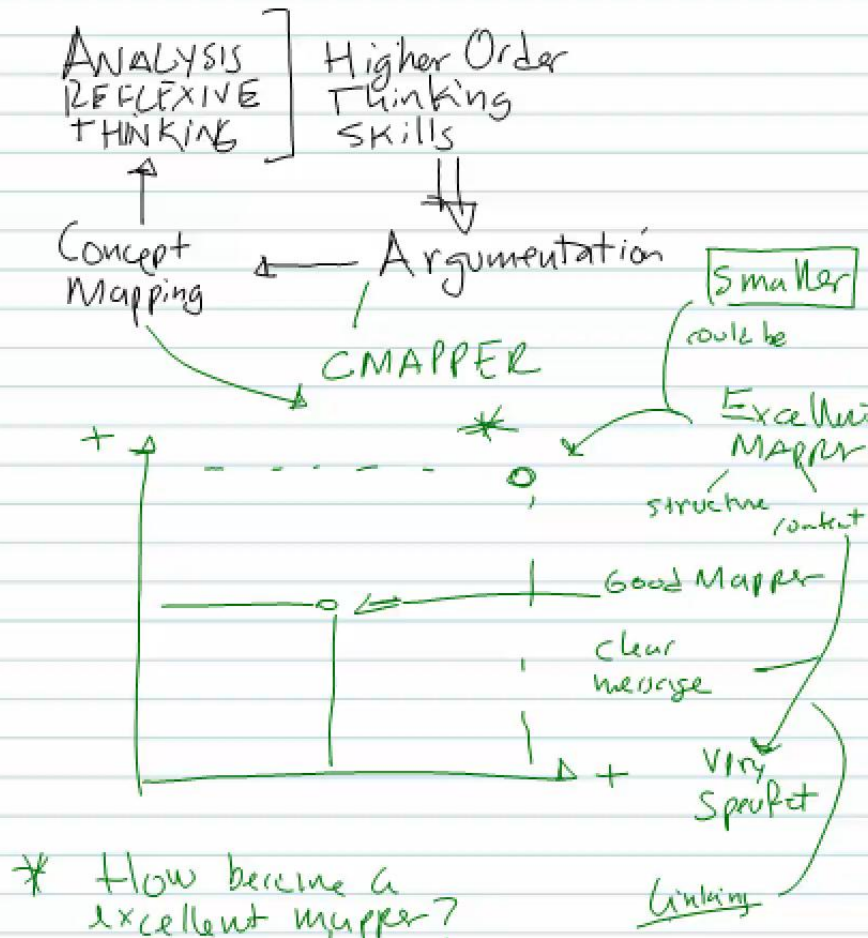 ANALYSIS
REFLEXIVE
THINKING
Higher Order
Thinking
Skills
Concept
Mapping
Argumentation
Smaller
could be
CMAPPER
*
Excellent
Mapper
+
structure
content
Good Mapper
clear
message
+
Very
* How become a
excellent mapper?
Linking